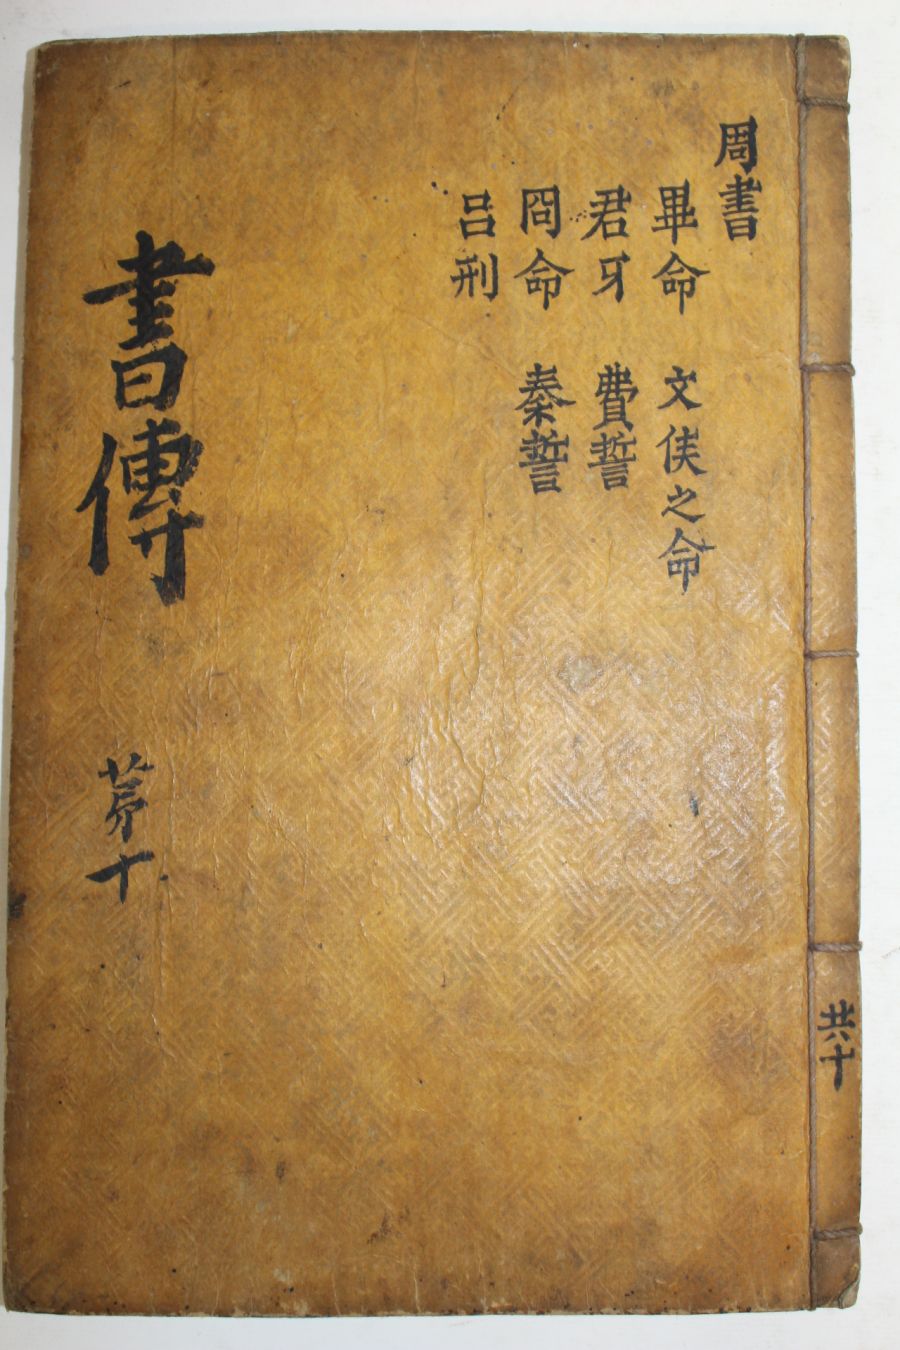 周書
畢命 文侯之命
君牙 費誓
冏命 秦誓
呂刑
書傳 苐十
共十